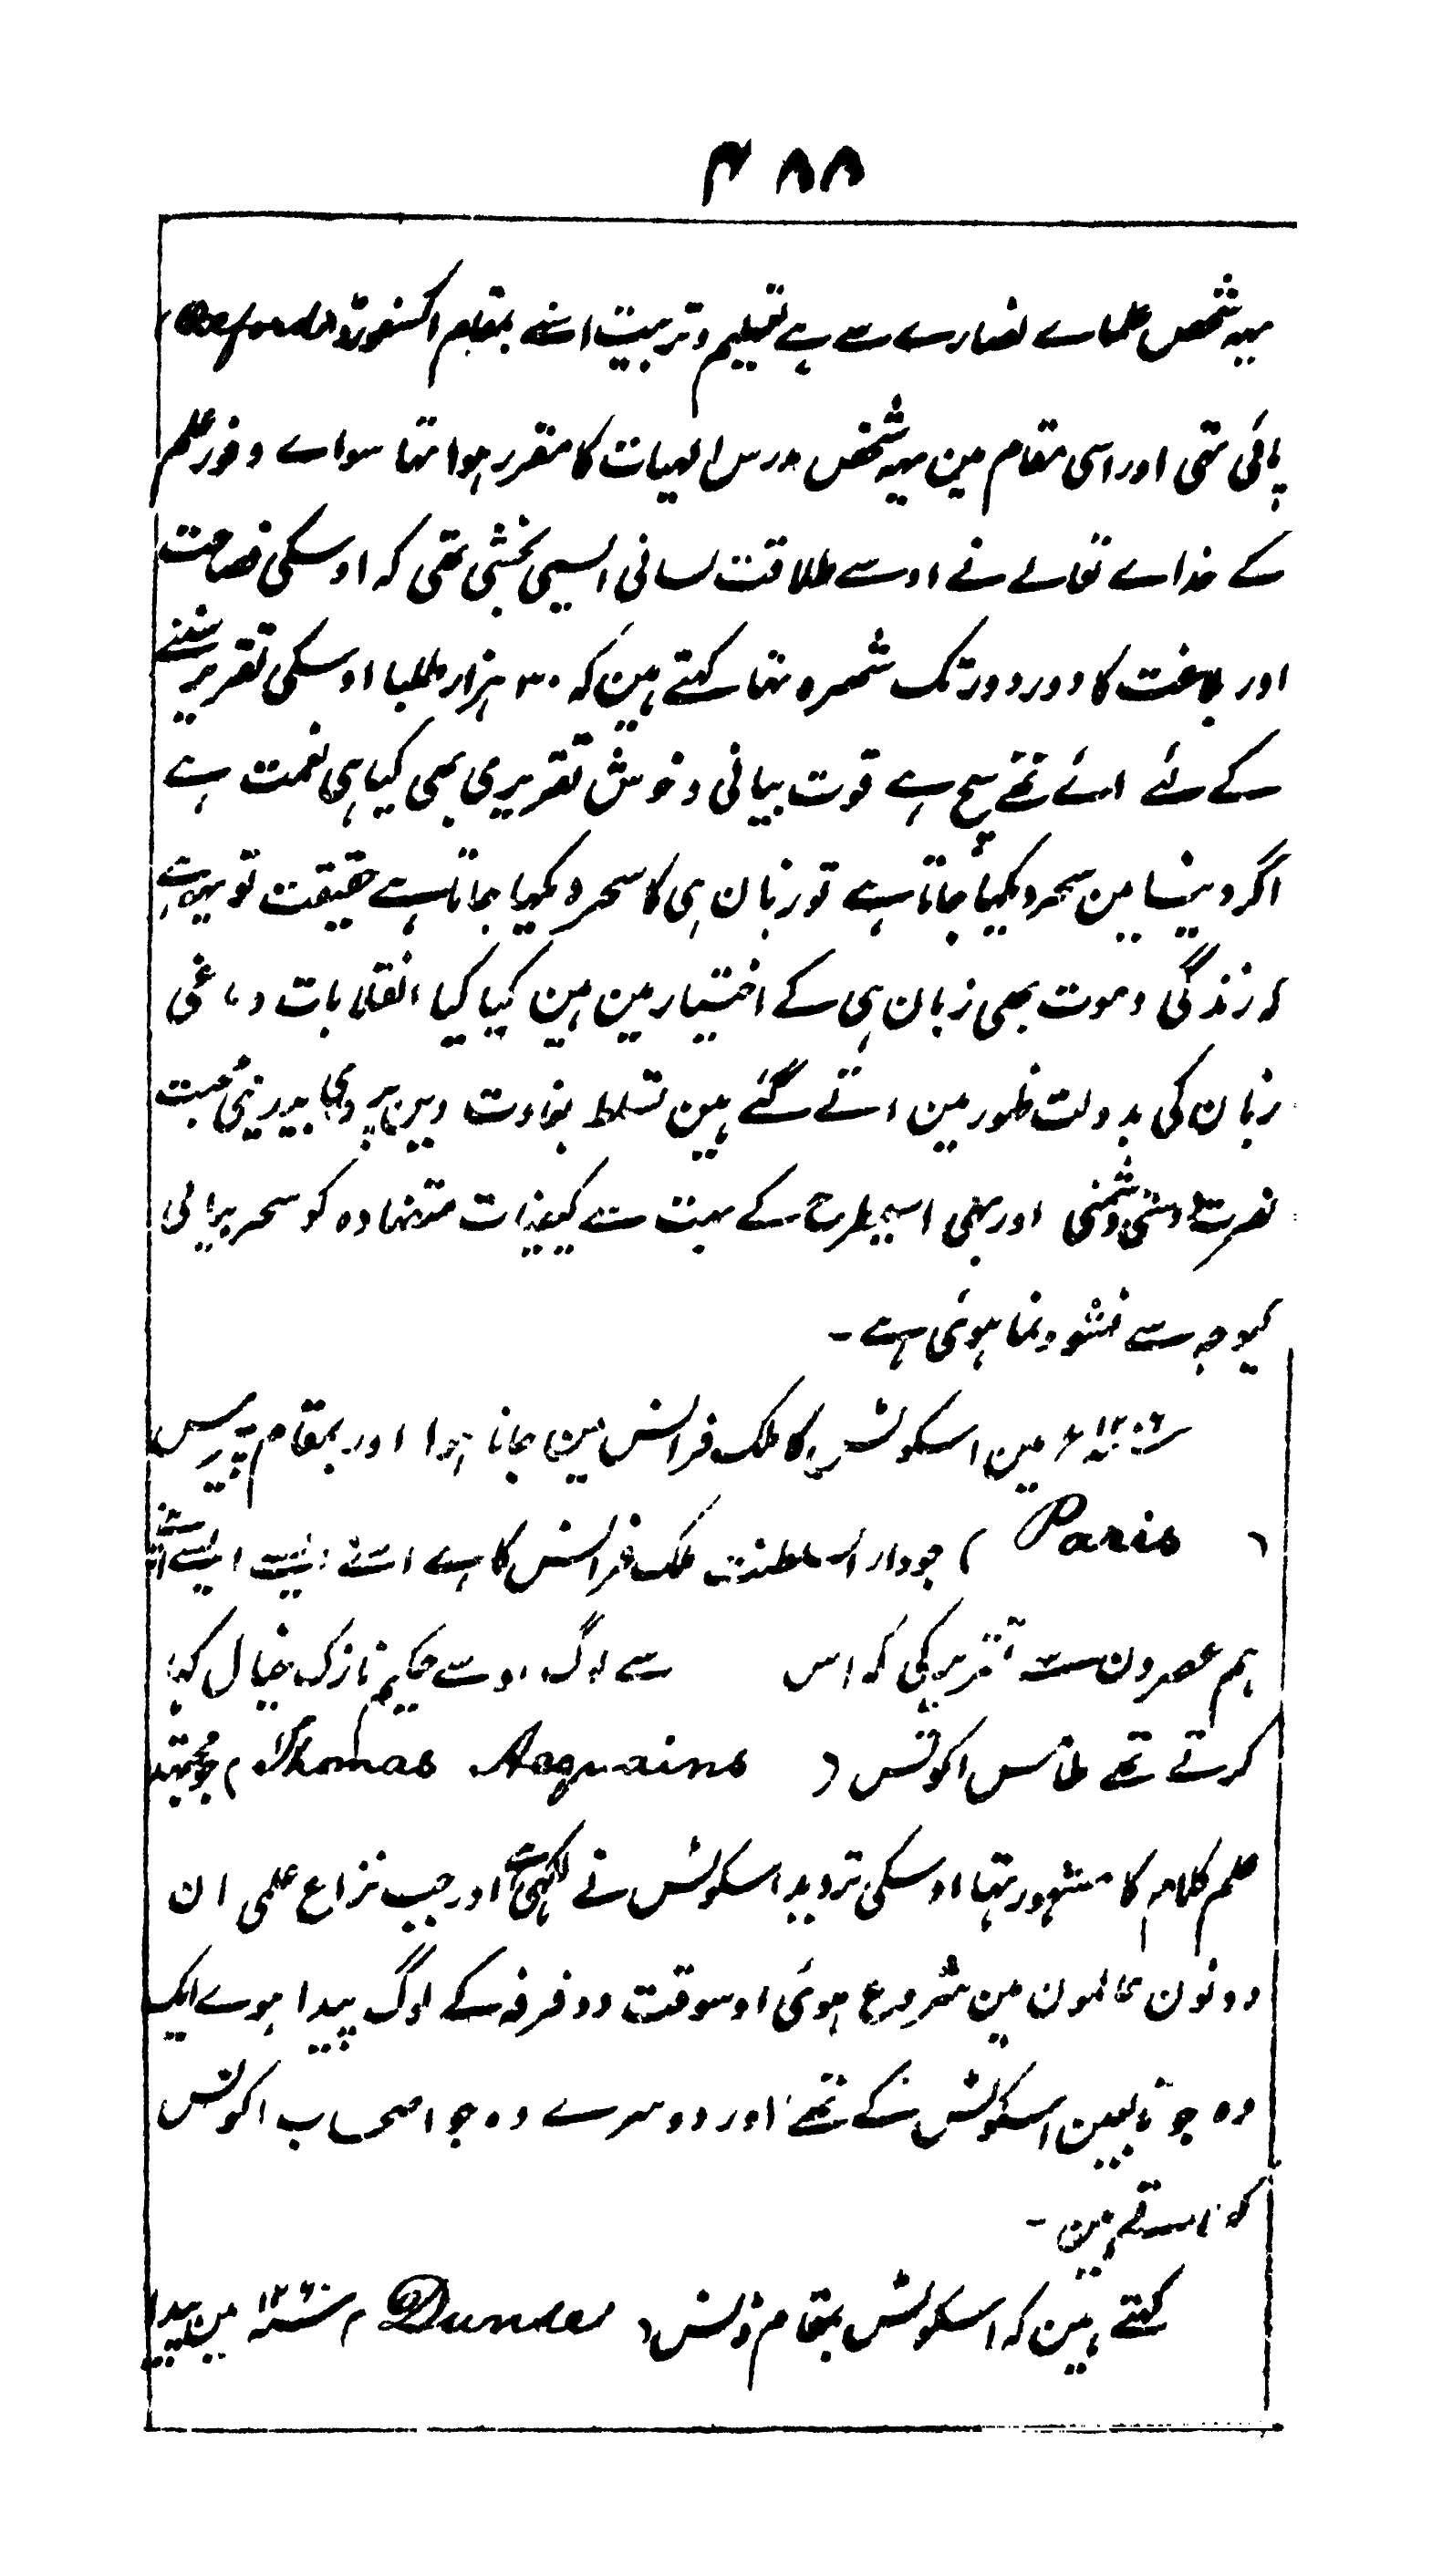 ۴۸۸
یہہ شخص علماے نصارے سے ہے تعلیم و تربیت اسنے بمقام اکسفورڈ (Oxford)
پائی تھی اور اسی مقام مین یہہ شخص مدرس الہیات کا مقرر ہوا تہا سواے وفور علم
کے خداے تعالے نے اوسے طلاقت لسانی ایسی بخشی تھی کہ اوسکی فصاحت
اور بلاغت کا دور دور تک شہرہ تہا کہتے ہین کہ ۳۰ ہزار طلبا اوسکی تقریر سننے
کے لئے ائے تھے سچ ہے قوت بیانی و خوش تقریری بھی کیا ہی نعمت ہے
اگر دنیا مین سحر دیکہا جاتا ہے تو زبان ہی کا سحر دیکہا جاتا ہے حقیقت تو یہہ ہے
کہ زندگی و موت بھی زبان ہی کے اختیار مین ہین کیا کیا انقلابات دماغی
زبان کی بدولت ظہور مین اتے گئے ہین تسلط بغاوت دین پروری بیدینی محبت
نفرت دوستی دشمنی اور بھی اسیطرح کے بہت سے کیفیات متضادہ کو سحر بیانی
کیوجہ سے نشو و نما ہوئی ہے ۔
سنہ ۱۳۰۶ء مین اسکوٹس کا ملک فرانس مین جانا ہوا اور بمقام پیرس
( Paris ) جو دار السلطنت ملک فرانس کا ہے اسنے اپنے ایسے
ہم عصرون سے تقریر کی کہ اس سے لوگ اوسے حکیم نازک خیال کہا
کرتے تھے طامس اکوئنس ( Thomas Aequains ) جو مجتہد
علم کلام کا مشہور تہا اوسکی تردید اسکوٹس نے لکہی ہے اور جب نزاع علمی ان
دونون عالمون مین شروع ہوئی اوسوقت دو فرقہ کے لوگ پیدا ہوے ایک
وہ جو تابعین اسکوٹس کے تھے اور دوسرے وہ جو اصحاب اکوئنس
کہلاتے ہین ۔
کہتے ہین کہ اسکوٹس بمقام ڈنس ( Dunse ) سنہ ۱۲۶۰ مین پیدا